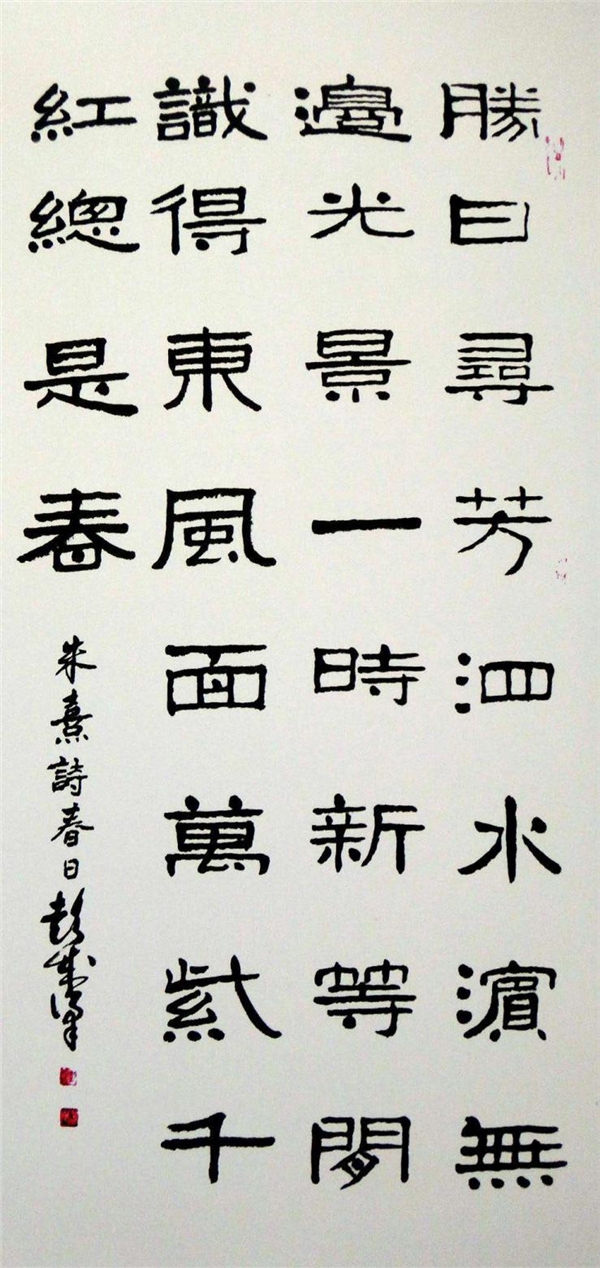 勝日尋芳泗水濱無
邊光景一時新等閒
識得東風面萬紫千
紅總是春
朱熹詩春日彭